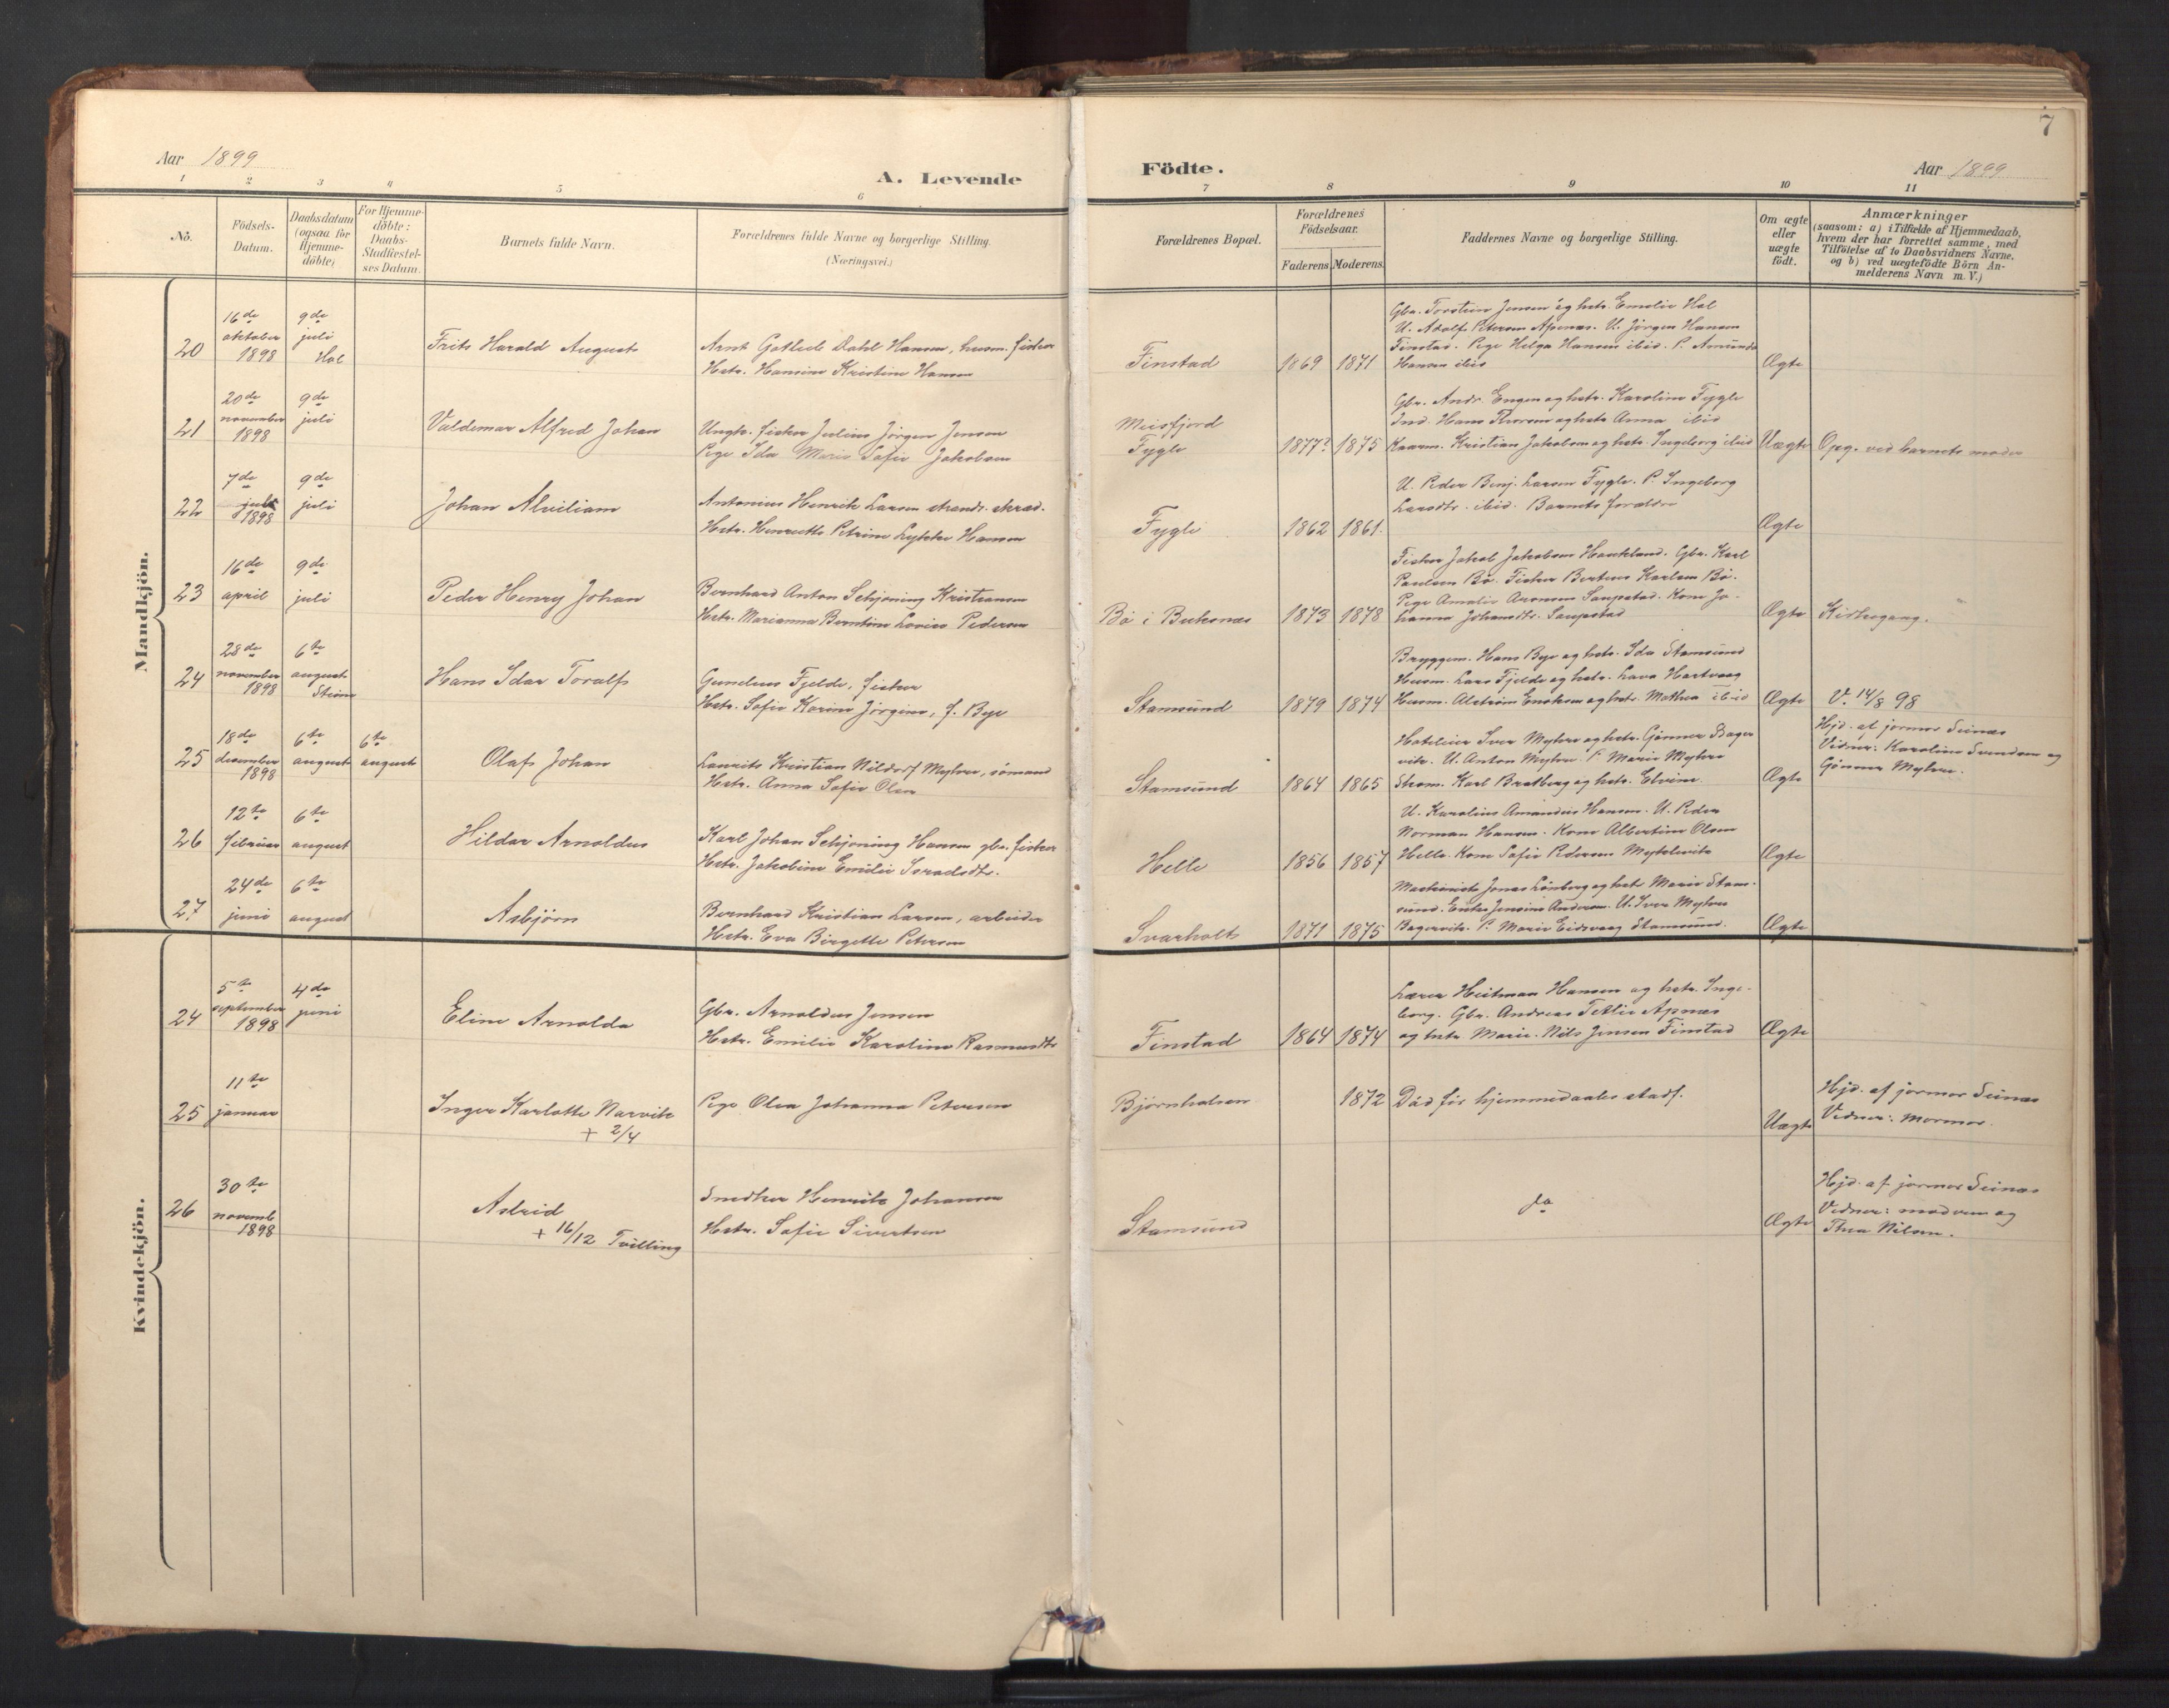 7
Aar 1899
A. Levende
Födte.
Aar 1899
1 2 3 4 5 6 7 8 9 10 11
No.
Födsels-
Datum.
Daabsdatum
(ogsaa for
Hjemme-
döbte)
For Hjemme-
döbte:
Daabs-
Stadfæstel-
ses Datum.
Barnets fulde Navn.
Forældrenes fulde Navne og borgerlige Stilling.
(Næringsvei.)
Forældrenes Bopæl.
Forældrenes
Födselsaar.
Faderens. Moderens.
Faddernes Navne og borgerlige Stilling.
Om ægte
eller
uægte
födt.
Anmærkninger
(saasom: a) i Tilfælde af Hjemmedaab,
hvem der har forrettet samme, med
Tilföielse af to Daabsvidners Navne,
og b) ved uægtefödte Börn An-
melderens Navn m. V.)
Mandkjön.
20
16de
oktober
1898
9de
juli
Hol
Frits Harald August
Arnt Gotlieb Dahl Hansen, husm. fisker
Hstr. Hansine Kristine Hansen
Finstad
1869 1871
Gbr. Torstein Jensen og hstr. Emelie Hol
U. Adolf Petersen Apenæs. U. Jörgen Hansen
Finstad. Pige Helga Hansen ibid. P. Amunda
Hansen ibid
Ægte
21
20de
november
1898
9de
juli
Valdemar Alfred Johan
Ungk. fisker Julius Jörgen Jensen
Pige Ida Marie Sofie Jakobsen
Meisfjord
Fygle
1877? 1875
Gbr. Andr. Engen og hstr. Karoline Fygle
Ind. Hans Thoresen og hstr Anna ibid
Kaarm. Kristian Jakobsen og hstr. Ingeborg ibid
Uægte
Opg. ved barnets moder
22
7de
juli
1898
9de
juli
Johan Alviliam
Antonius Henrik Larsen strands. skræd.
Hstr. Henriette Petrine Lykke Hansen
Fygle
1862 1861.
U. Peder Benj. Larsen Fygle. P. Ingeborg
Larsdtr. ibid. Barnets forældre
Ægte
23
16de
april
9de
juli
Peder Henry Johan
Bernhard Anton Schjöning Kristiansen
Hstr. Marianna Berntine Lovise Pedersen
Bö i Buksnes
1873 1878
Fisker Jakob Jakobsen Haukland. Gbr. Karl
Paulsen Bö. Fisker Berteus Karlsen Bö.
Pige Amalie Aronsen Saupstad. Kone Jo-
hanna Johansdtr. Saupstad
Ægte
Kirkegang.
24
28de
november
1898
6te
august
Stene
Hans Idar Toralf
Gunelius Fjelde, fisker
Hstr. Sofie Karine Jörgine, f. Bye
Stamsund
1879 1874
Bryggem. Hans Bye og hstr. Ida Stamsund
Husm. Lars Fjelde og hstr. Lava Hartvaag
Husm. Alström Enoksen og hstr. Mathea ibid
Ægte
V. 14/8 98
25
18de
desember
1898
6te
august
6te
august
Olaf Johan
Laurits Kristian Mildorf Myhre, sömand
Hstr. Anna Sofie Olsen
Stamsund
1864 1865
Hoteleier Iver Myhre og hstr. Gönner Bager
vik. U. Anton Myhre. P. Marie Myhre
Skom. Karl Bratberg og hstr. Elvine.
Ægte
Hjd. af jormor Steinæs
Vidner: Karoline Svendsen og
Gönner Myhre.
26
12te
februar
6te
august
Hildar Arnoldus
Karl Johan Schjöning Hansen gbr. fisker
Hstr. Jakobine Emilie Israelsdtr.
Helle
1856 1857
U. Karolius Amandus Hansen. U. Peder
Norman Hansen. Kone Albertine Olsen
Helle. Kone Sofie Pedersen
Ægte
27
24de
juni
6te
august
Asbjörn
Bernhard Kristian Larsen, arbeider
Hstr. Eva Birgette Petersen
Svarholt
1871 1875
Maskinist Jonas Lönberg og hstr Marie Stam-
sund. Enke Jensine Andersen. U. Iver Myhre
Bagervik. P. Marie Eidsvaag Stamsund.
Ægte
Kvindekjön.
24
5te
september
1898
4de
juni
Eline Arnolda
Gbr. Arnoldus Jensen
Hstr. Emilie Karoline Rasmusdtr
Finstad
1864 1874
Lærer Heitman Hansen og hstr. Inge-
borg. Gbr. Andreas Tetlie Apnæs
og hstr Marie. Nils Jensen Finstad
Ægte
25
11te
januar
Inger Karlotte Narvik
+ 2/4
Pige Olea Johanna Petersen
Bjørnhalsen
1872
Död för hjemmedaabs stadf.
Uægte
Hjd. af jormor Steinæs
Vidner: Mormor.
26
30te
novemb
1898
Astrid
+ 16/12 Tvilling
Snedker Henrik Johansen
Hstr. Sofie Sivertsen
Stamsund
do
Ægte
Hjd. af jormor Steinæs
Vidner: moderen og
Thea Nilsen.